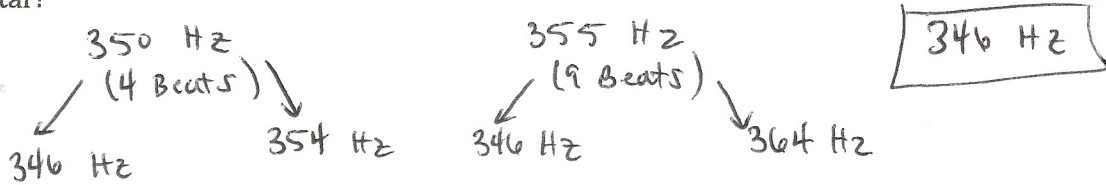 350 Hz
(4 Beats)
346 Hz
354 Hz
355 Hz
(9 Beats)
346 Hz
364 Hz
346 Hz